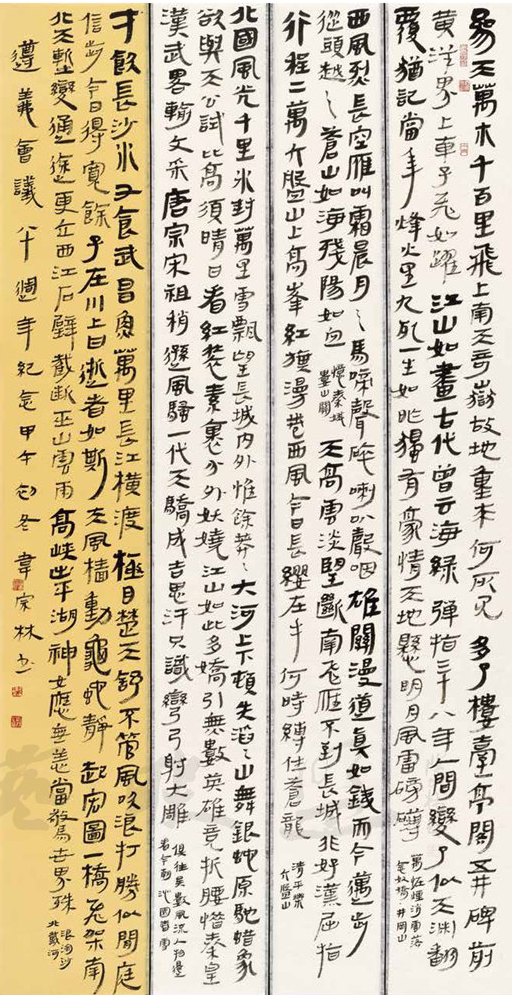 參天萬木千百里飛上南天奇嶽故地重來何所見多了樓臺亭閣五井碑前
黄洋界上車子飛如躍江山如畫古代曾云海綠彈指三十八年人間變了似天淵翻
覆猶記當年烽火里九死一生如昨獨有豪情天地懸明月風雷磅礴
萬怪煙消雲落
念奴嬌井岡山
西風烈長空雁叫霜晨月〻馬啼聲碎喇叭聲咽雄關漫道真如鐵而今邁步
從頭越〻蒼山如海殘陽如血
憶秦娥
婁山關
天高雲淡望斷南飛雁不到長城非好漢屈指
行程二萬六盤山上高峯紅旗漫卷西風今日長纓在手何時縛住蒼龍
清平樂
六盤山
北國風光千里冰封萬里雪飄望長城内外惟餘莽〻大河上下頓失滔〻山舞銀蛇原馳蠟象
欲與天公試比高須晴日看紅裝素裹分外妖嬈江山如此多嬌引無數英雄竟折腰惜秦皇
漢武畧輸文采唐宗宋祖稍遜風騷一代天驕成吉思汗只識彎弓射大雕
俱往矣數風流人物還
看今朝沁園春雪
才飲長沙水又食武昌魚萬里長江橫渡極目楚天舒不管風吹浪打勝似閒庭
信步今日得寬餘子在川上曰逝者如斯夫風檣動龜蛇靜起宏圖一橋飛架南
北天塹變通途更立西江石壁截斷巫山雲雨高峽出平湖神女應無恙當驚世界殊
浪淘沙
北戴河
遵義會議八十週年紀念甲午初冬韋宗林書